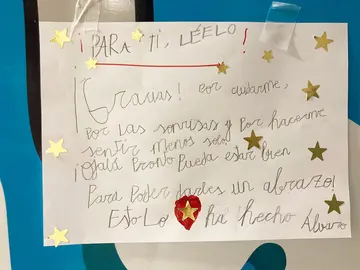 ¡PARA TI, LÉELO!
¡Gracias! Por cuidarme,
Por las sonrisas y Por hacerme
sentir menos solo!
¡Ojalá Pronto Pueda estar bien
Para Poder darles un abrazo!
Esto Lo ha hecho Álvaro